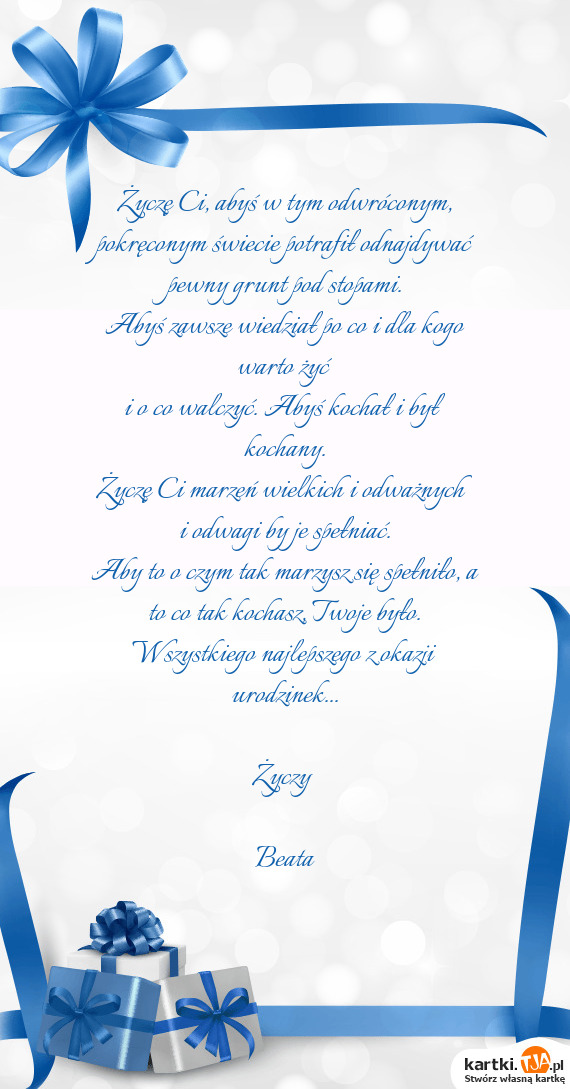 Życzę Ci, abyś w tym odwróconym,
pokręconym świecie potrafił odnajdywać
pewny grunt pod stopami.
Abyś zawsze wiedział po co i dla kogo
warto żyć
i o co walczyć. Abyś kochał i był
kochany.
Życzę Ci marzeń wielkich i odważnych
i odwagi by je spełniać.
Aby to o czym tak marzysz się spełniło, a
to co tak kochasz, Twoje było.
Wszystkiego najlepszego z okazji
urodzinek...
Życzy
Beata
kartki.TJA.pl
Stwórz własną kartkę